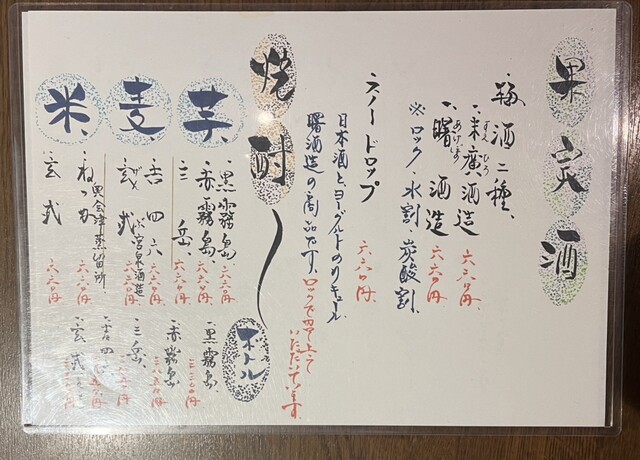 果実酒
梅酒二種、
一、末廣酒造 六六〇円
すえひろ
一、曙酒造 六六〇円
あけぼの
※ロック、水割、炭酸割、
スノードロップ 六六〇円
日本酒とヨーグルトのリキュール
曙酒造の商品です。ロックで
いただいています。
焼酎
芋、
一、黒霧島、六六〇円
一、赤霧島、六六〇円
一、三岳、六六〇円
麦、
一、吉四六、六六〇円
一、武
米、
一、ねっか 六六〇円
奥会津蒸留所
一、玄武 六六〇円
ボトル
一、黒霧島、
一、赤霧島
一、三岳、
一、吉四
一、玄武